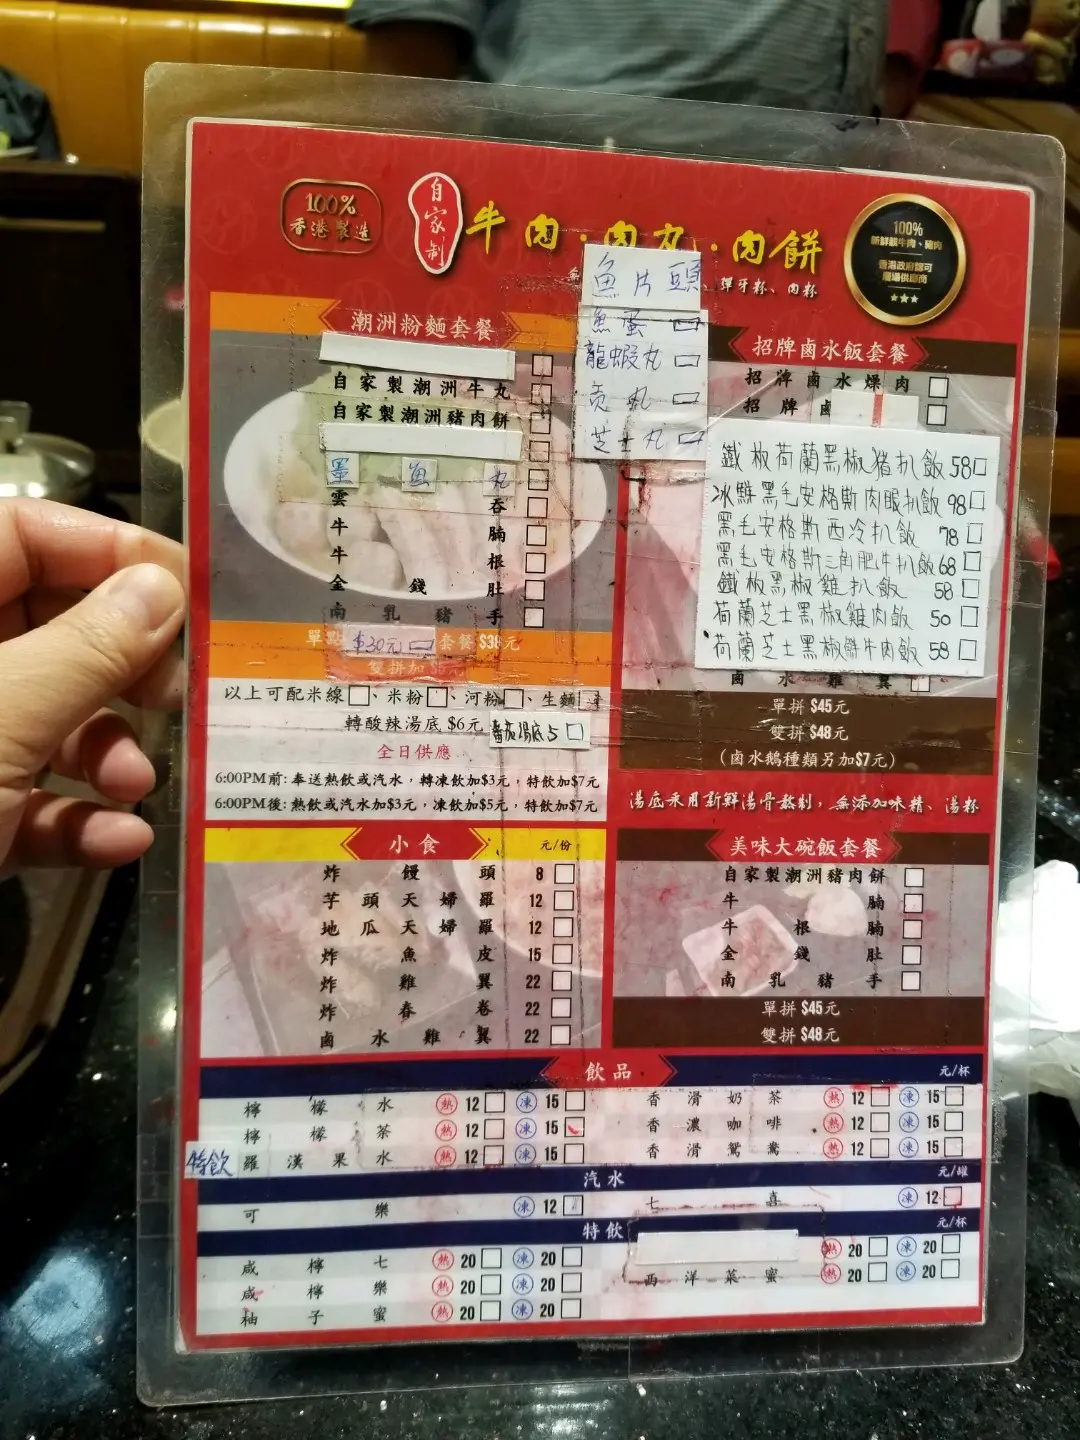 100%
香港製造
自家制
牛肉·肉丸·肉餅
彈牙粉、肉粉
100%
新鮮靚牛肉、豬肉
香港政府認可
屠場供應商
魚片頭
魚蛋
龍蝦丸
貢丸
芝士丸
潮洲粉麵套餐
自家製潮洲牛丸
自家製潮洲豬肉餅
墨魚丸
雲吞
牛腩
牛根
金錢肚
南乳豬手
單 $30元 套餐 $38元
雙拼加 元
以上可配米線、米粉、河粉、生麵
轉酸辣湯底 $6元 番茄湯底 5
全日供應
6:00PM前: 奉送熱飲或汽水，轉凍飲加$3元，特飲加$7元
6:00PM後: 熱飲或汽水加$3元，凍飲加$5元，特飲加$7元
招牌鹵水飯套餐
招牌鹵水燥肉
招牌鹵
鐵板荷蘭黑椒豬扒飯 58
冰鮮黑毛安格斯肉眼扒飯 98
黑毛安格斯西冷扒飯 78
黑毛安格斯三角肥牛扒飯 68
鐵板黑椒雞扒飯 58
荷蘭芝士黑椒雞肉飯 50
荷蘭芝士黑椒餅牛肉飯 58
鹵水雞翼
單拼 $45元
雙拼 $48元
(鹵水鵝種類另加$7元)
湯底采用新鮮湯骨熬制，無添加味精、湯粉
小食 元/份
炸饅頭 8
芋頭天婦羅 12
地瓜天婦羅 12
炸魚皮 15
炸雞翼 22
炸春卷 22
鹵水雞翼 22
美味大碗飯套餐
自家製潮洲豬肉餅
牛腩
牛根腩
金錢肚
南乳豬手
單拼 $45元
雙拼 $48元
飲品 元/杯
檸檬水 熱 12 凍 15 香滑奶茶 熱 12 凍 15
檸檬茶 熱 12 凍 15 香濃咖啡 熱 12 凍 15
特飲 羅漢果水 熱 12 凍 15 香滑鴛鴦 熱 12 凍 15
汽水 元/罐
可樂 凍 12 七喜 凍 12
特飲 元/杯
咸檸七 熱 20 凍 20 熱 20 凍 20
咸檸樂 熱 20 凍 20 西洋菜蜜 熱 20 凍 20
柚子蜜 熱 20 凍 20